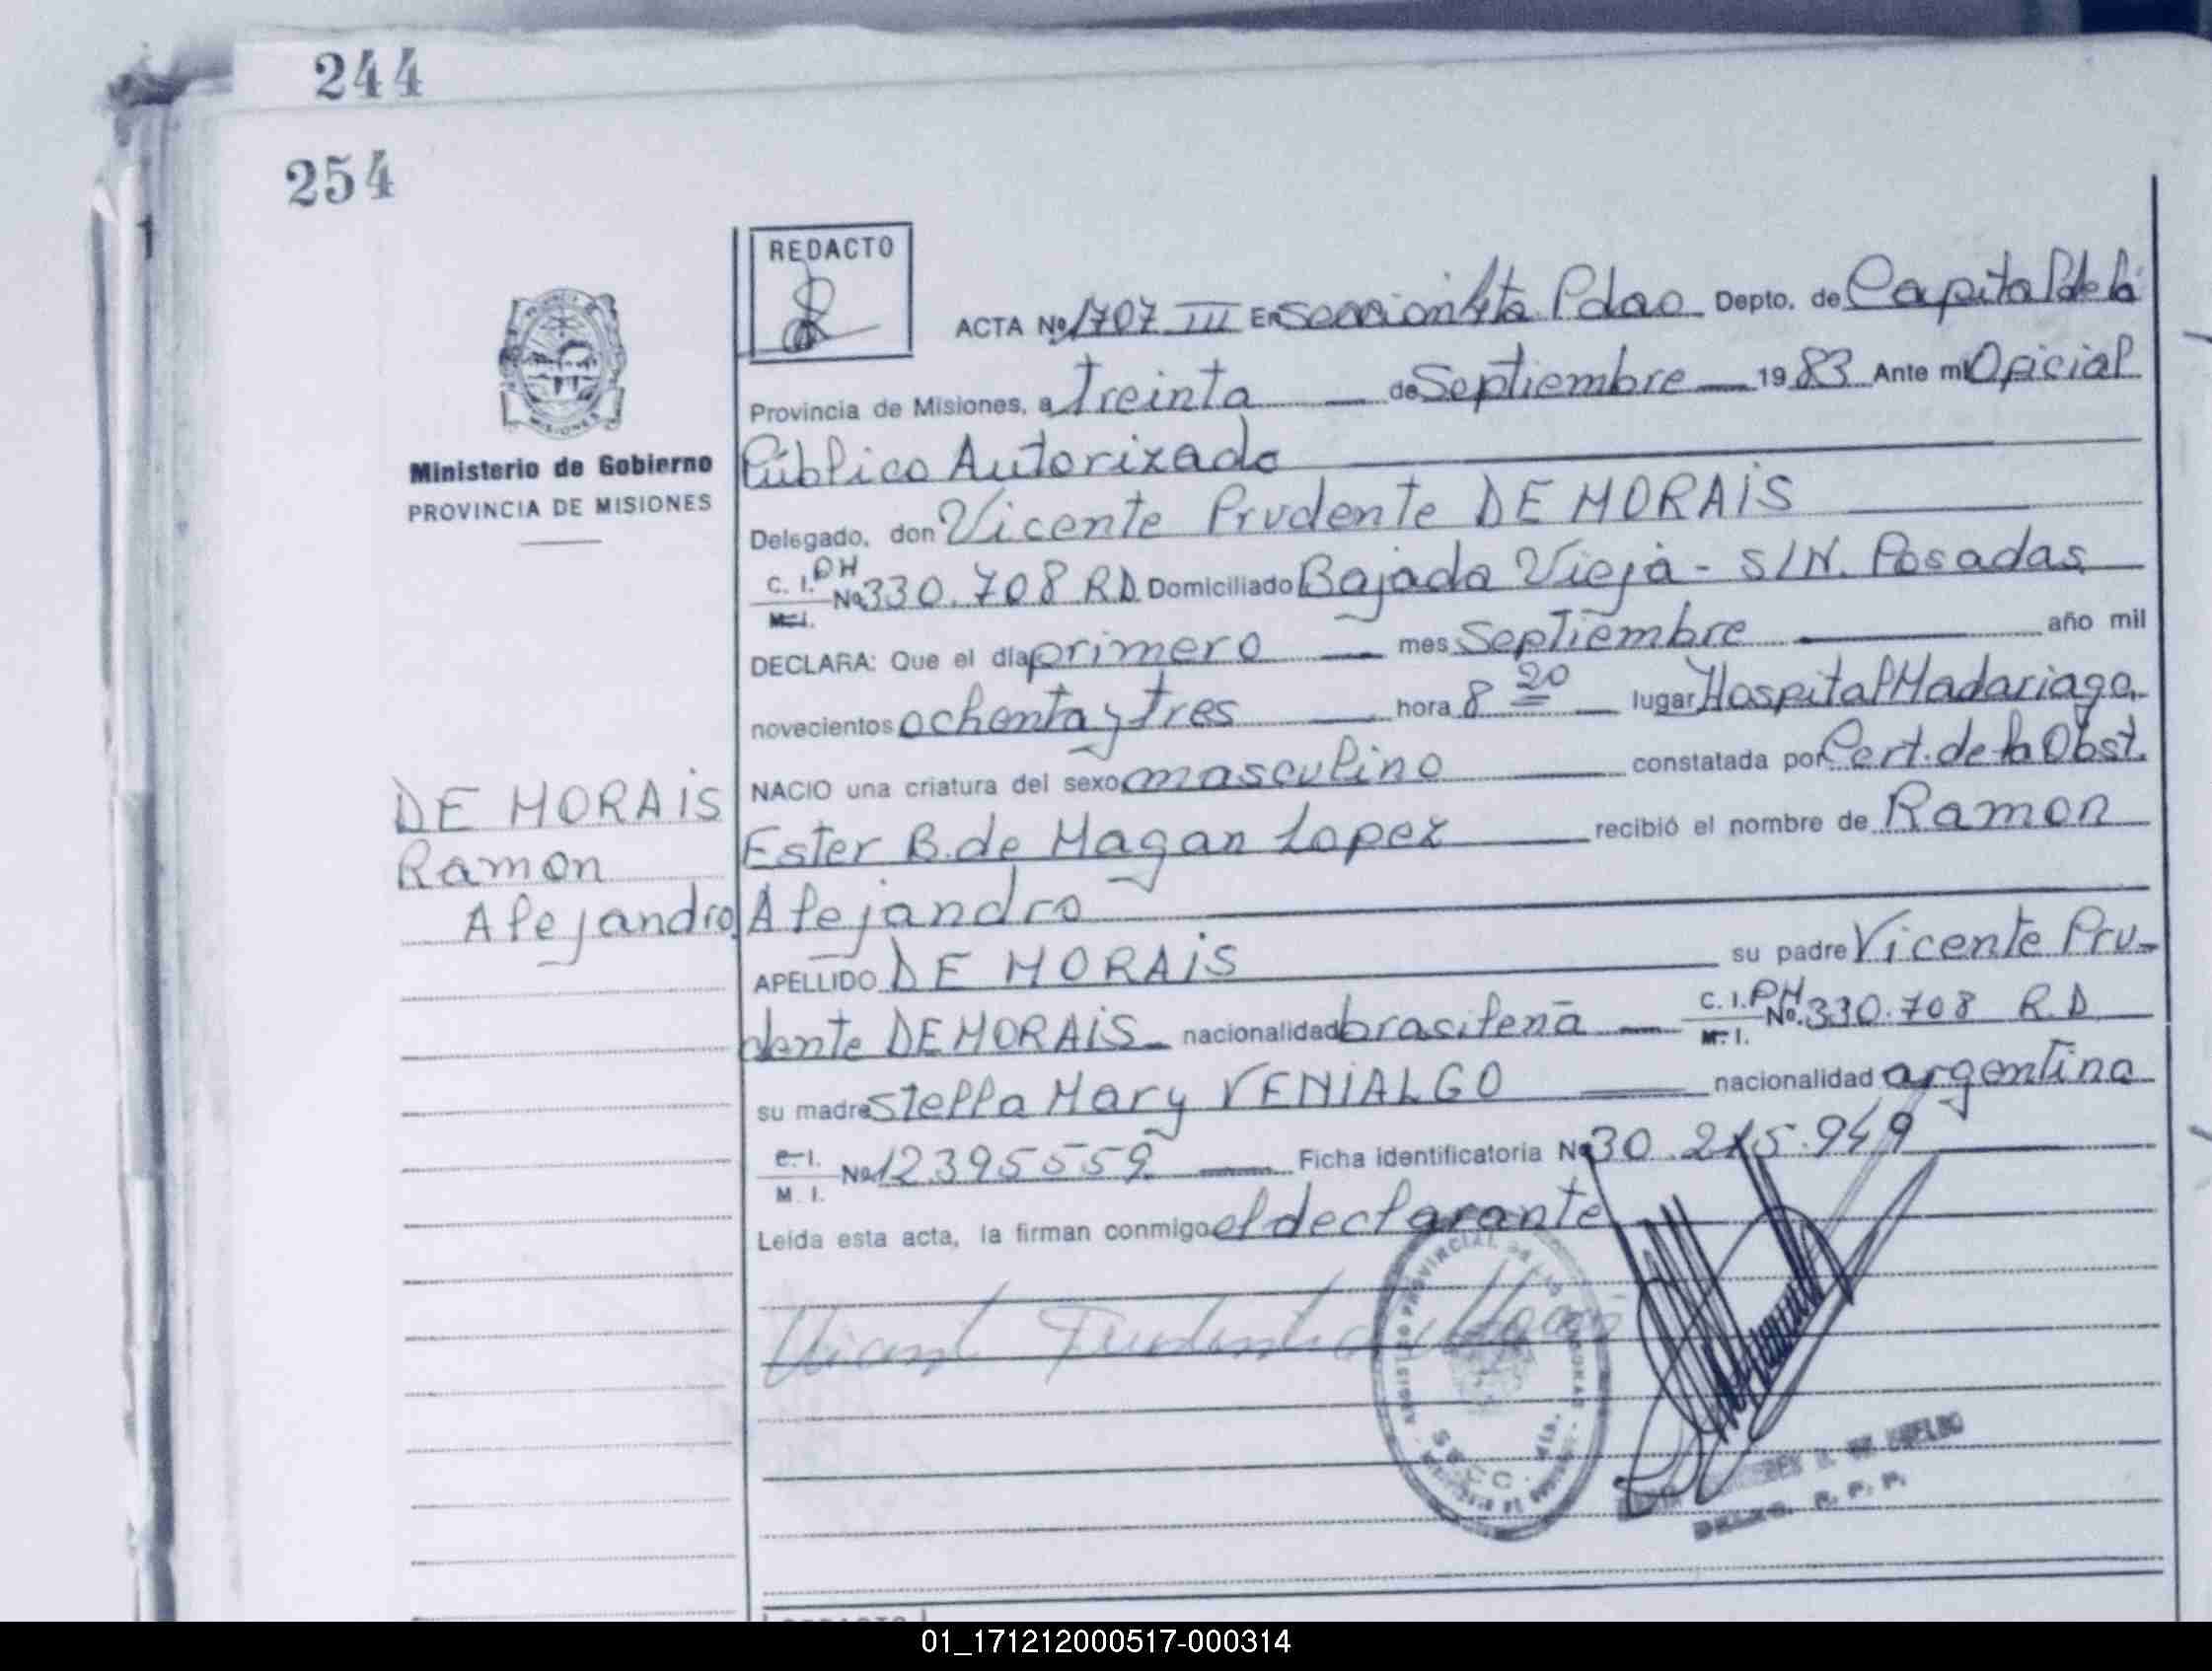 244
254
REDACTO
ACTA No 1707 III En Seccion 4ta Pdas Depto. de Capital de la
Provincia de Misiones, a treinta de Septiembre 1983 Ante mi Oficial
Público Autorizado
Delegado, don Vicente Prudente DE MORAIS
C. I. PH
M. I. No 330.708 RD Domiciliado Bajada Vieja - S/N. Posadas
DECLARA: Que el día primero mes Septiembre año mil
novecientos ochenta y tres hora 8 20 lugar Hospital Madariaga,
NACIO una criatura del sexo masculino constatada por Cert. de la Obst.
Ester B. de Magan Lopez recibió el nombre de Ramon
Alejandro
APELLIDO DE MORAIS su padre Vicente Pru-
dente DE MORAIS nacionalidad brasileña C. I. PH M. I. No. 330.708 R.D
su madre Stella Mary VENIALGO nacionalidad argentina
C. I.
M. I. No 12.395.559 Ficha identificatoria No 30.215.949
Leida esta acta, la firman conmigo el declarante
Ministerio de Gobierno
PROVINCIA DE MISIONES
DE MORAIS
Ramon
Alejandro
01_171212000517-000314